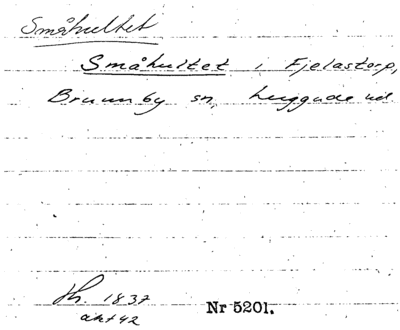 Småhultet
Småhultet i Fjelastorp,
Brunnby sn, Luggude hd.
Th. 1837
akt 42
Nr 5201.